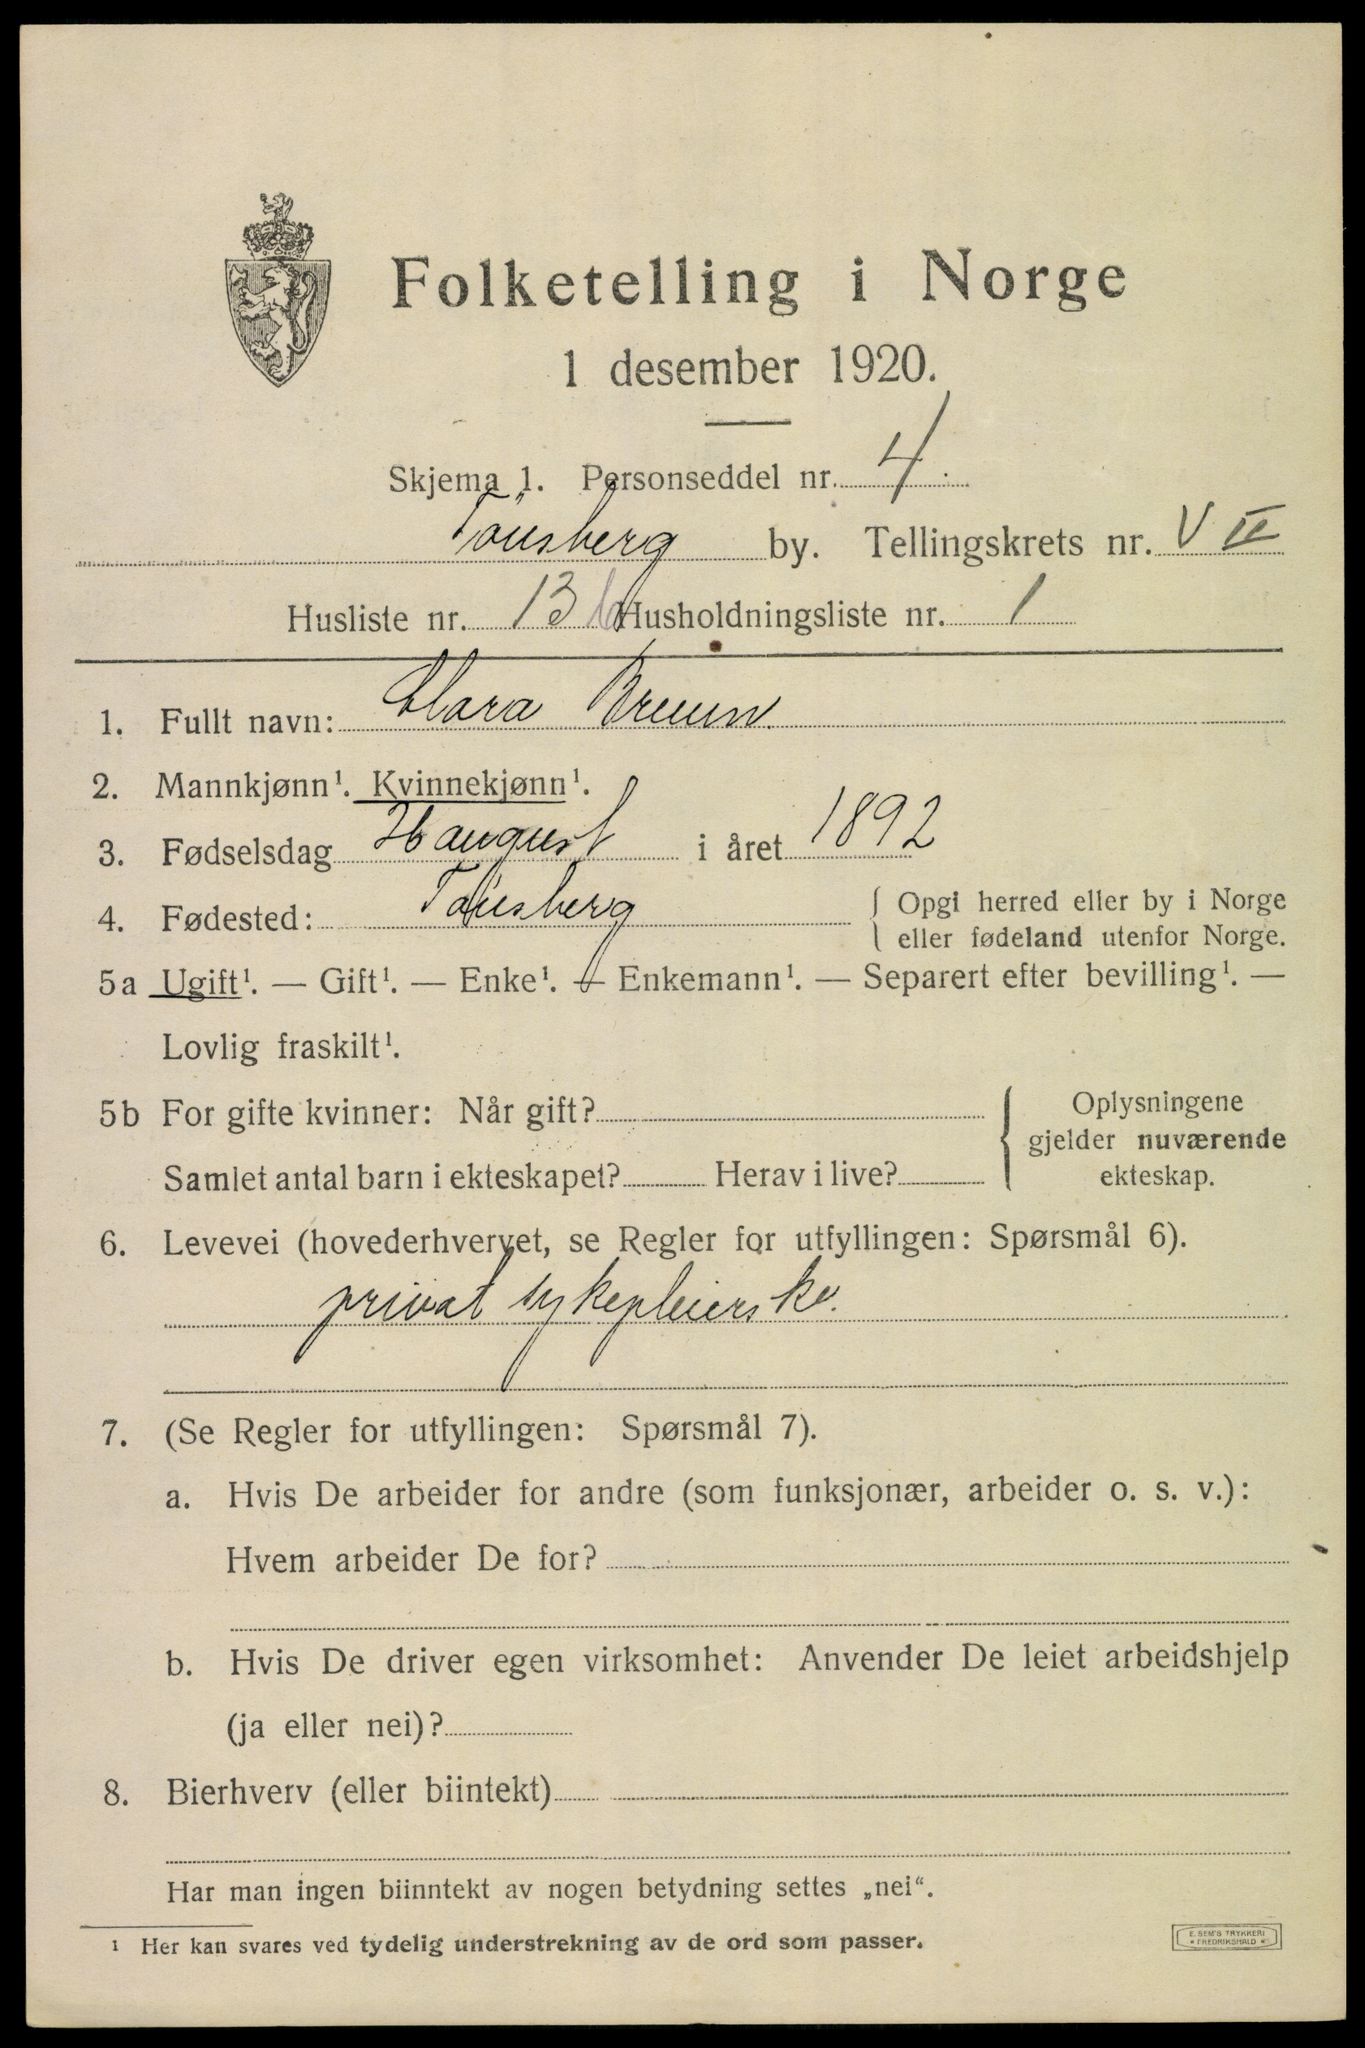 Folketelling i Norge
1 desember 1920.
Skjema 1. Personseddel nr. 4.
Tönsberg by. Tellingskrets nr. VII
Husliste nr. 13 b Husholdningsliste nr. 1
1. Fullt navn: Clara Bruun
2. Mannkjønn¹. Kvinnekjønn¹.
3. Fødselsdag august i året 1892
4. Fødested: Tönsberg { Opgi herred eller by i Norge
eller fødeland utenfor Norge.
5a Ugift¹. — Gift¹. — Enke¹. — Enkemann¹. — Separert efter bevilling¹. —
Lovlig fraskilt¹.
5b For gifte kvinner: Når gift? { Oplysningene
gjelder nuværende
Samlet antal barn i ekteskapet? Herav i live? ekteskap.
6. Levevei (hovederhvervet, se Regler for utfyllingen: Spørsmål 6).
privat sykepleierske.
7. (Se Regler for utfyllingen: Spørsmål 7).
a. Hvis De arbeider for andre (som funksjonær, arbeider o. s. v.):
Hvem arbeider De for?
b. Hvis De driver egen virksomhet: Anvender De leiet arbeidshjelp
(ja eller nei)?
8. Bierhverv (eller biintekt)
Har man ingen biinntekt av nogen betydning settes „nei“.
¹ Her kan svares ved tydelig understrekning av de ord som passer.
E. SEM'S TRYKKERI
* FREDRIKSHALD *